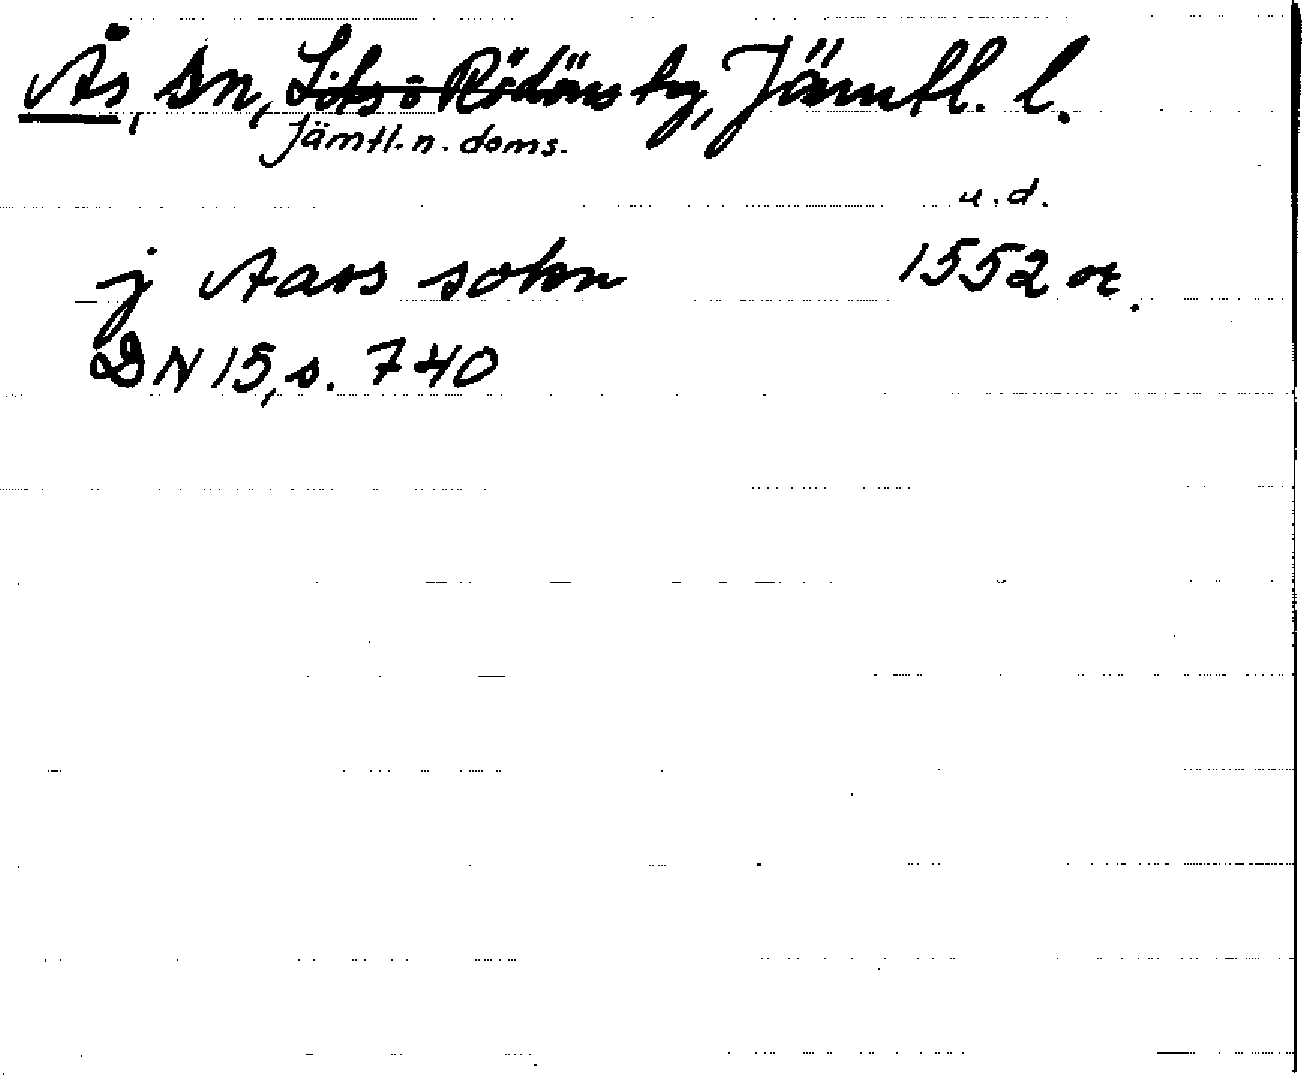 Ås, sn, Lits o Rödöns hg, Jämtl. l.
Jämtl. n. doms.
u.d.
j Aass sokn 1552 or.
DN 15, s. 740